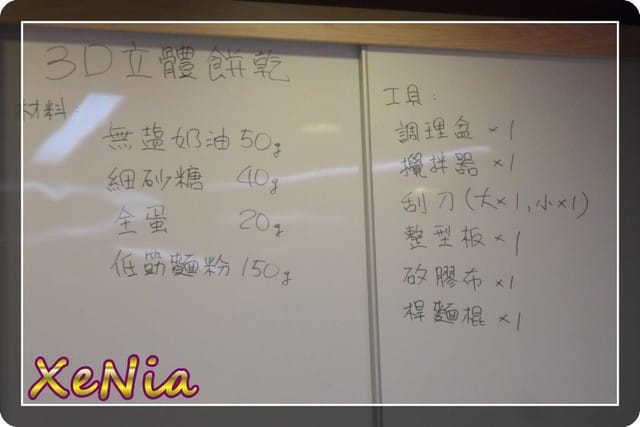 3D立體餅乾
材料:
無盐奶油 50g
細砂糖 40g
全蛋 20g
低筋麵粉 150g
工具:
調理盆 ×1
攪拌器 ×1
刮刀(大×1,小×1)
整型板 ×1
矽膠布 ×1
桿麵棍 ×1
XeNia